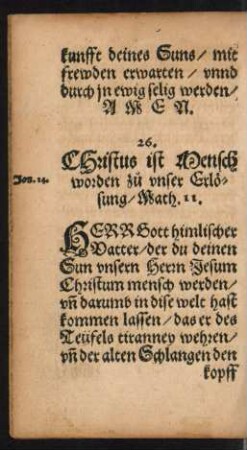 kunfft deines Suns / mit
frewden erwarten / vnnd
durch jn ewig selig werden /
A M E N.
26.
CHristus ist Mensch
Jon. 14.
worden zů vnser Erlö-
sung / Math. 11.
HERR Gott himlischer
Vatter / der du deinen
Sun vnsern Herrn Jesum
Christum mensch werden /
vñ darumb in dise welt hast
kommen lassen / das er des
Teüfels tiranney wehren /
vñ der alten Schlangen den
kopff